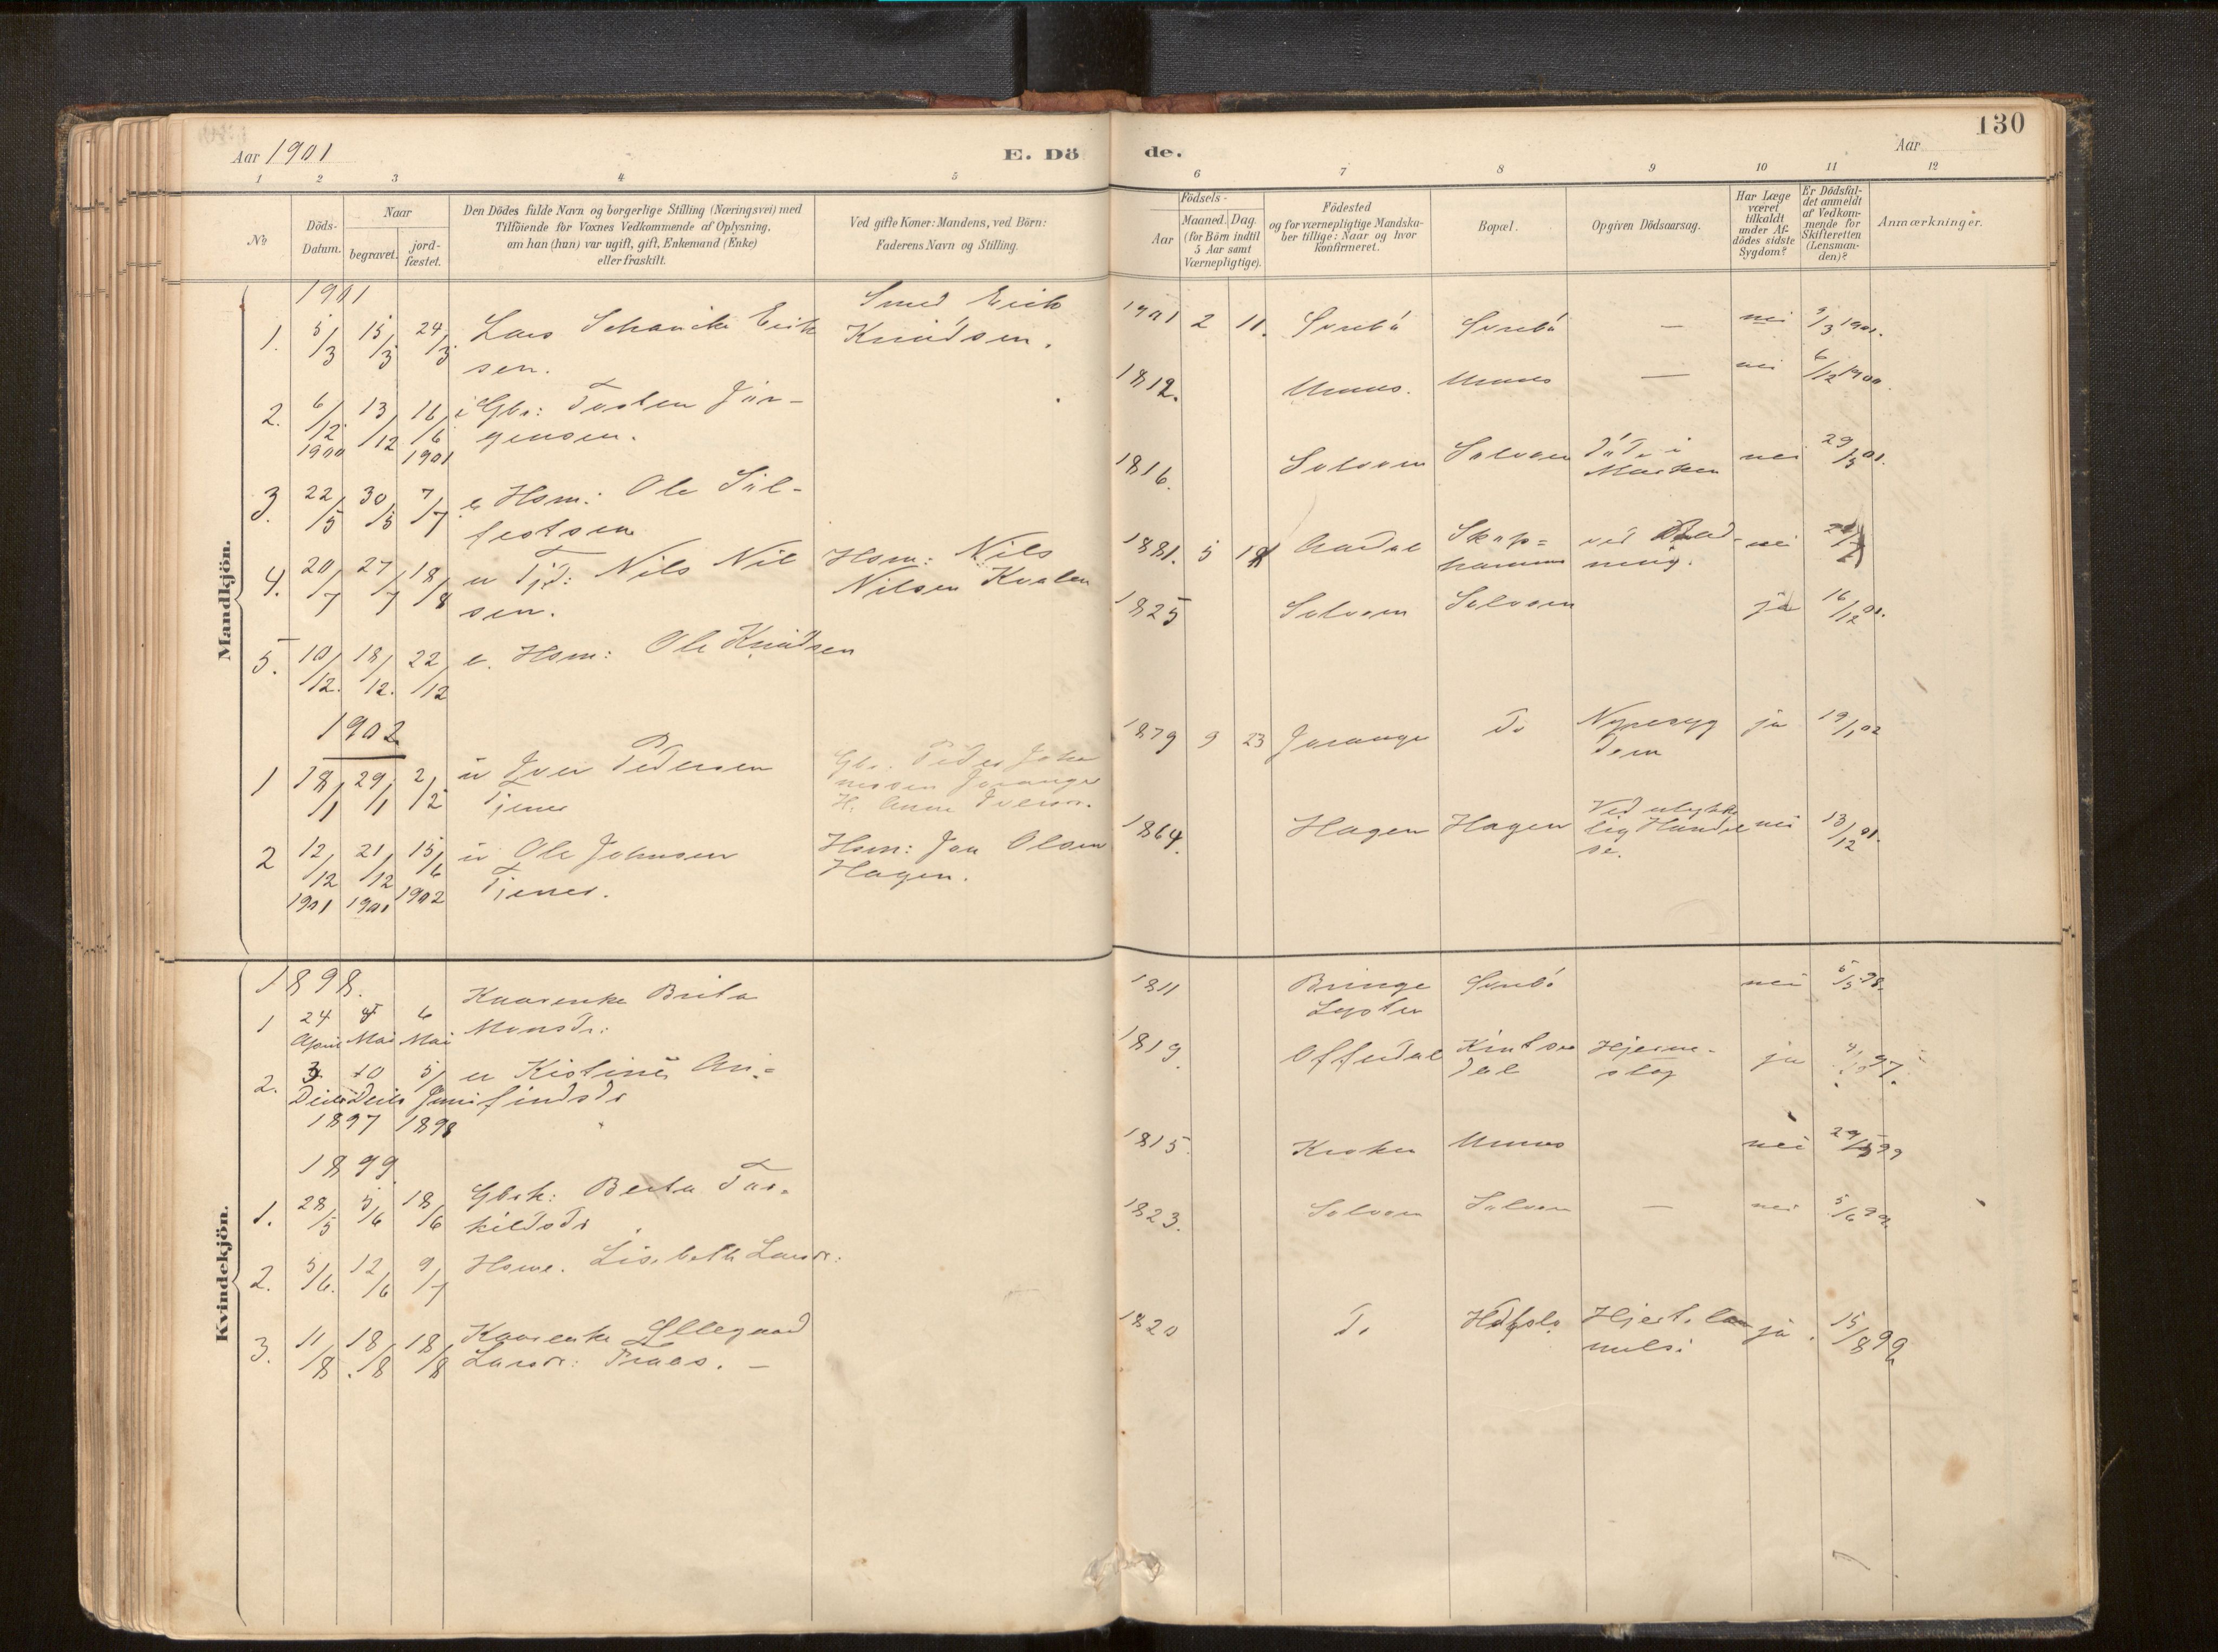 130
Aar 1901
E. Dö
de.
Aar
1 2 3 4 5 6 7 8 9 10 11 12
No
Döds-
Datum.
Naar
begravet.
jord-
fæstet.
Den Dödes fulde Navn og borgerlige Stilling (Næringsvei) med
Tilföiende for Voxnes Vedkommende af Oplysning,
om han (hun) var ugift, gift, Enkemand (Enke)
eller fraskilt.
Ved gifte Koner: Mandens, ved Börn:
Faderens Navn og Stilling.
Födsels-
Aar
Maaned. Dag.
(for Börn indtil
5 Aar samt
Værnepligtige).
Födested
og for værnepligtige Mandska-
ber tillige: Naar og hvor
konfirmeret.
Bopæl.
Opgiven Dödsaarsag.
Har Læge
været
tilkaldt
under Af-
dödes sidste
Sygdom?
Er Dödsfal-
det anmeldt
af Vedkom-
mende for
Skifteretten
(Lensman-
den)?
Anmærkninger.
Mandkjön.
1901
1. 5/3 15/3 24/3 Lars Schancke Erik
sen.
Smed Erik
Knudsen.
1901 2 11. — nei 9/3 1901.
2. 6/12 1900 13/12 16/6 1901 Gbr: Torsten Jör-
gensen.
1812. Munes. Munes — nei 6/12 1900.
3. 22/5 30/5 7/7 e Hsm: Ole Sjul-
festsen
1816. Solvorn Solvorn Död i
Marken nei 29/5 01.
4. 20/7 27/7 18/8 u Tj: Nils Nil
sen.
Hsm: Nils
Nilsen Kvalen
1881. 5 18 Aardal ved
ning. nei
5. 10/12. 18/12. 22/12 e. Hsm: Ole Knudsen
1825 Solvorn Solvorn ja 16/12 01.
1902
1 18/1 29/1 2/2 u Iver Pedersen
Tjener
Gbr. Peder Joha
nnesen Joranger
H. Anna Iversdr.
1879 9 23 Joranger Do Nyresyg
dom ja 19/1 02
2 12/12 1901 21/12 1901 15/6 1902 u Ole Johnsen
Tjener.
Hsm: Jon Olsen
Hagen.
1864. Hagen Hagen Ved ulykke
lig Hændel
se. nei 13/12 01.
Kvindekjön.
1898.
1 24 April Mai 6 Mai Kaarenke Brita
Monsdr:
1811 Bringe
Lyster nei 5/5 98.
2. 3 10 5 Juni
1897 1898
1819. Offerdal Hjerne-
slag ja 97.
1899.
1. 28/5 5/6 18/6 Gbrk: Berta Tor-
kildsdr
1815. Kroken Munes nei 29/5 99
2. 5/6. 12/6 9/7 Hsme. Lisabeth Larsdr:
1823. Solvorn Solvorn — nei 5/6 99.
3. 11/8 18/8 18/8 Kaarenke Ellegaard
Larsdr: Praas. —
1820 Do ja 15/8 99.